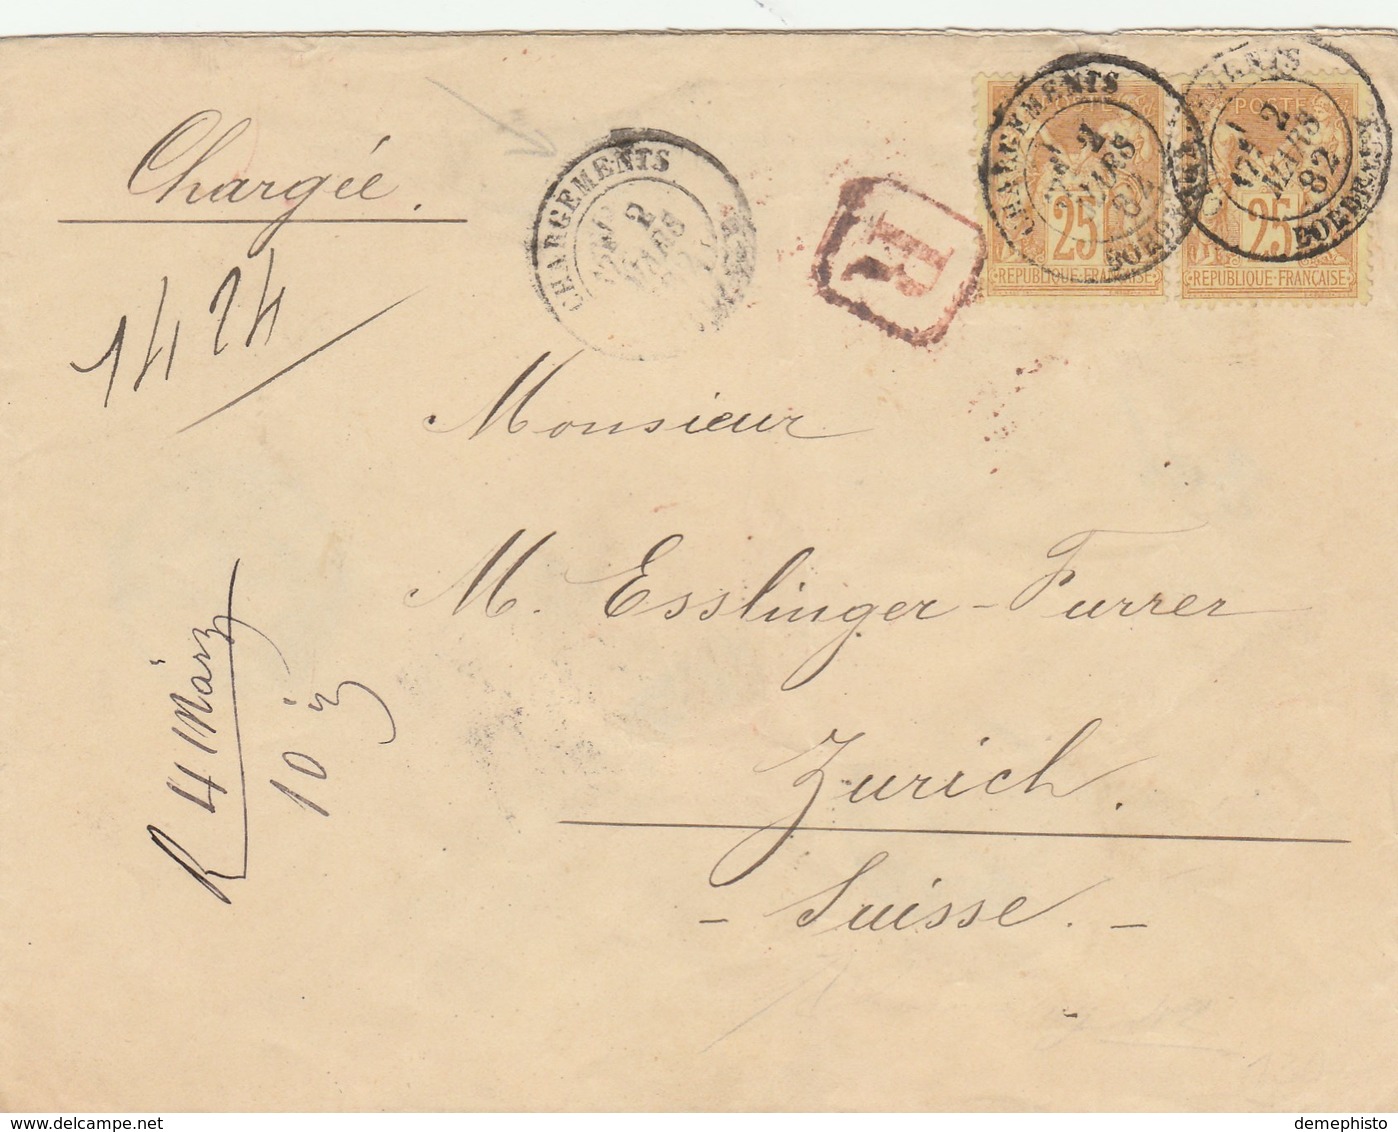 Chargée.
1424
CHARGEMENTS
2
MARS
R
CHARGEMENTS
2
MARS
82
BORDEAUX
25
REPUBLIQUE FRANÇAISE
POSTE
2
MARS
82
BORDEAUX
25
REPUBLIQUE FRANÇAISE
Monsieur
M. Esslinger-Furrer
Zurich.
- Suisse. -
R 4 März
10
www.delcampe.net
demephisto